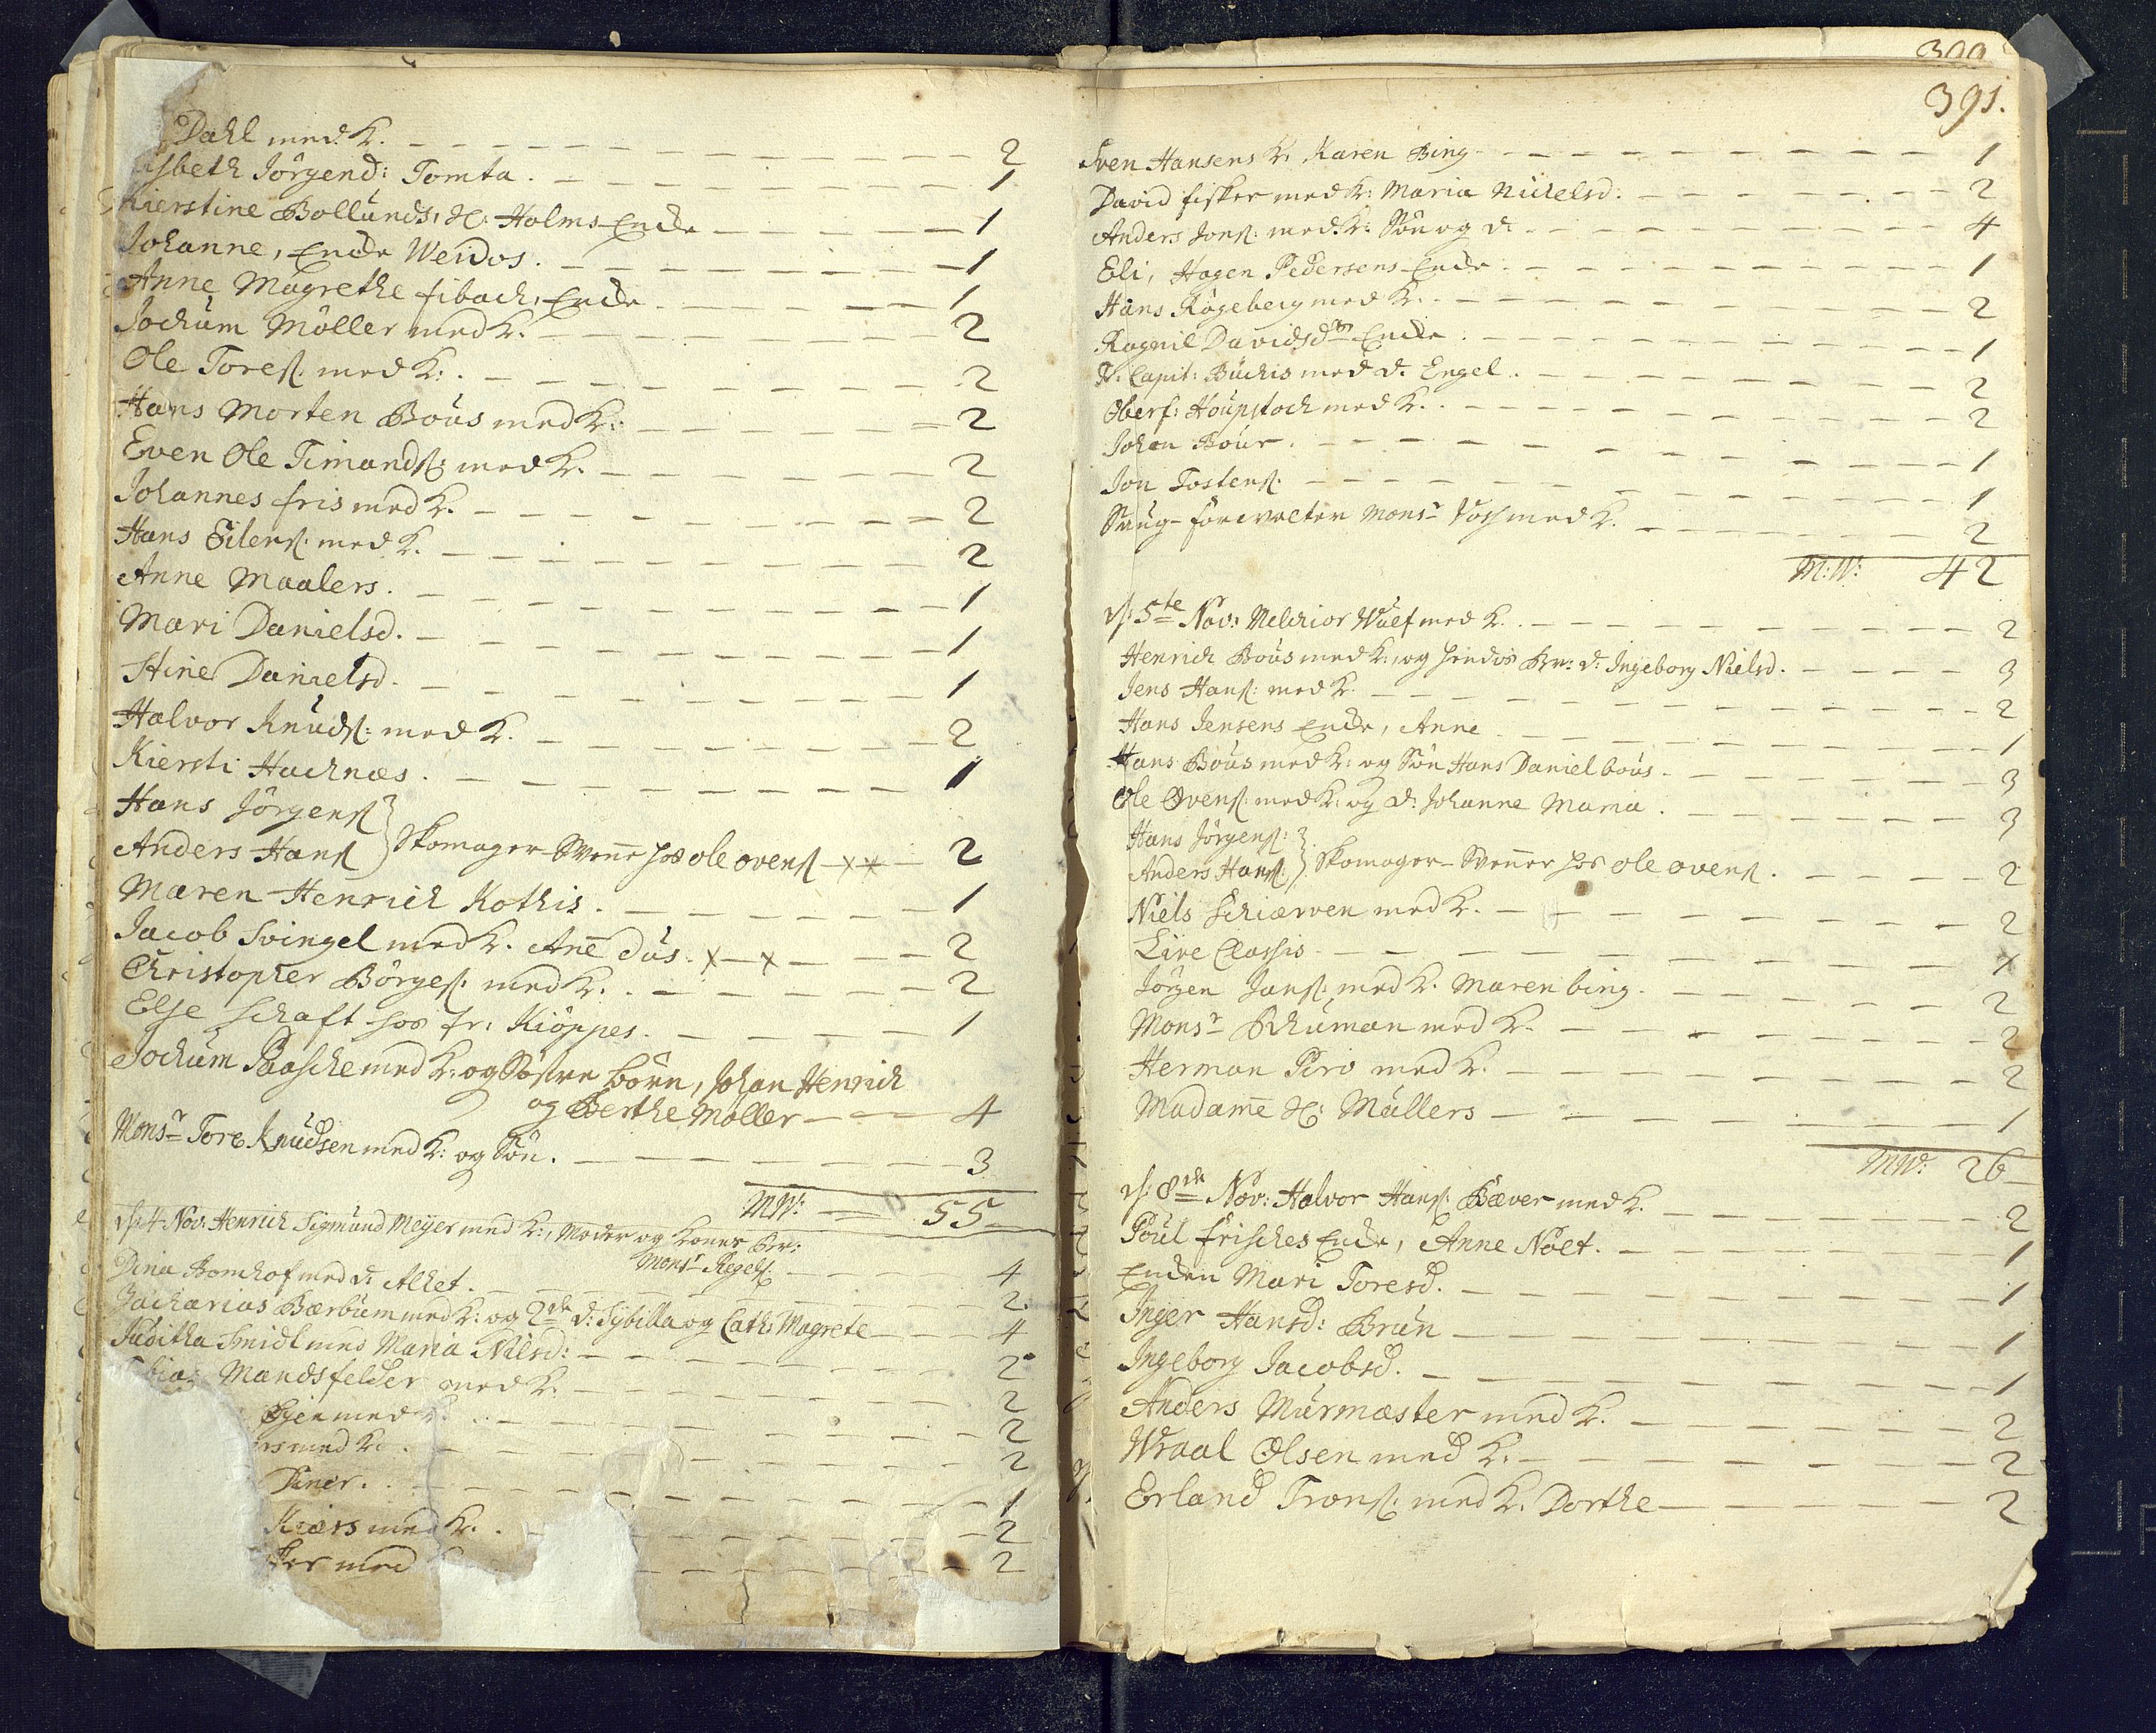 Dahl med K. 2
isbeth Jörgend: Tomta. 1
Kierstine Bollunds, Sl: Holms Encke 1
Johanne, Encke Weidos. 1
Anne Magrethe fibach, Encke 1
Jochum Möller med K. 2
Ole Toreß. med K: 2
Hans Morten Bous med K: 2
Even Ole Timandß: med K. 2
Johannes fris med K. 2
Hans Eilerß. med K. 2
Anne Maalers. 1
Mari Danielsd. 1
Stine Danielsd. 1
Halvor Knudß: med K. 2
Kiersti Hachnæs. 1
Hans Jörgenß
Anders Hanß } Skomager-Svenne hos ole ovenß x x 2
Maren Henrich Kothis. 1
Jacob Svingel med K. Anē Dus. x x 2
Christopher Börgeß. med K. 2
Else Schaft hos Fr: Kiöppes. 1
Jochum Paasche med K: og Söstre börn, Johan Henrich
og Berthe Möller 4
Monsr Tore Knudsen med K: og Sön. 3
MW: 55
d. 4. Nov: Henrich Sigmund Meyer med K:, Moder og Koner Br:
Monsr Regelß. 4
Dina Bomhof med d: Alhet. 2
Zacharias Bærbüm med K: og 2de d: Sybilla og Cath: Magrete 4
Juditha Smidt med Maria Nilsd: 2
bias Mandsfelder med K. 2
Gien med K. 2
rs med K. 2
Diner. 1
Kiærs med K. 2
ker med 2
399
391.
Sven Hansens K. Karen Bing 1
David fisker med K: Maria Nickelsd. 2
Anders Jonß. med K: Sön og d: 4
Eli, Hagen Pedersens Encke 1
Hans Rögeberg med K. 2
Ragnil Davidsdr Encke 1
Fr. Capit: Büchis med d. Engel. 2
Oberf: Houpstoch med K. 2
Johan Bour. 1
Jon Tostenß. 1
Saug-forvalter Monsr Voss med K. 2
M:W: 42
d. 5te Nov: Melchior Wulf med K. 2
Henrich Bous med K:, og hendes Br: d: Ingeborg Nielsd. 3
Jens Hanß: med K. 2
Hans Jensens Encke, Anne 1
Hans Bous med K: og Sön Hans Daniel bous. 3
Ole Ovenß: med K: og d: Johanne Maria. 3
Hans Jörgenß:
Anders Hanß: } Skomager-Svenner hos ole ovenß. 2
Niels Schiærven med K. 2
Live Classis 1
Jörgen Janß: med K. Maren bing. 2
Monsr Schuman med K. 2
Herman Piro med K. 2
Madamē Sl: Müllers 1
MW: 26
d. 8de Nov: Halvor Hanß. Bæver med K. 2
Poul Frisches Encke, Anne Nolt. 1
Encken Mari Toresd. 1
Inger Hansd: Brun 1
Ingeborg Jacobsd. 1
Anders Murmæster med K. 2
Wraal Olsen med K. 2
Erland Tronß. med K. Dorthe 2